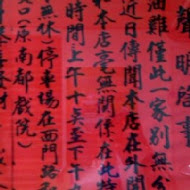 聲明啟事
油雞僅此一家別無分
近日傳聞本店在外開
和本店毫無關係在此特
時間上午十矣至下午
無休停車場在西門路
(原南都戲院)